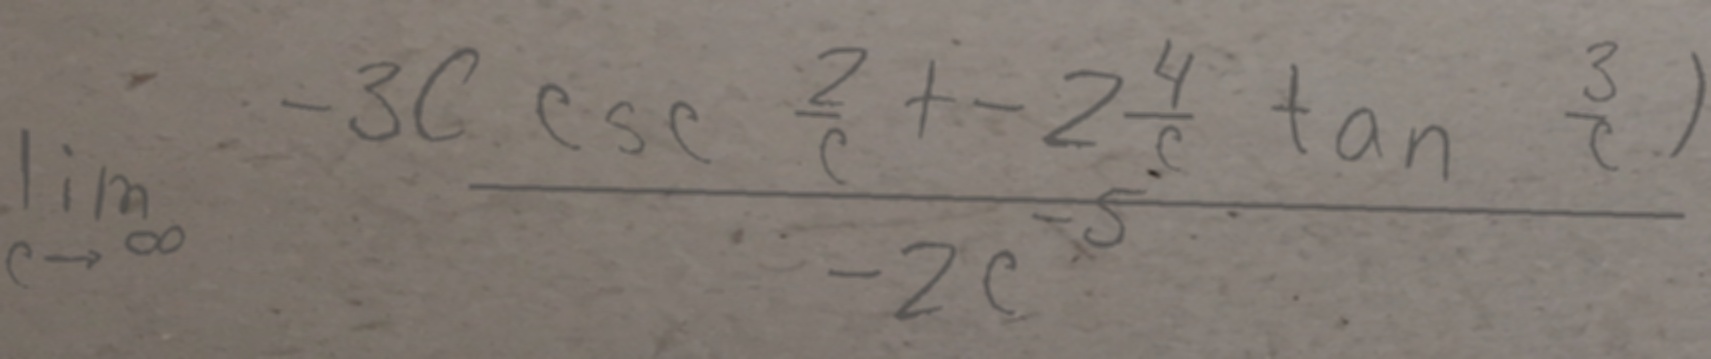 \lim_{c \to \infty} \frac{-3(\csc \frac{2}{c} + -2 \frac{4}{c} \tan \frac{3}{c})}{-2c^{-5}}